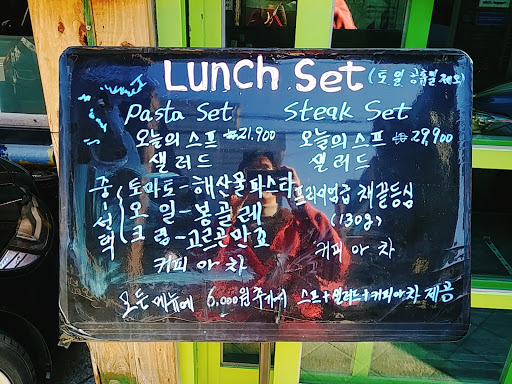 Lunch Set (토일 공휴일 제외)
Pasta Set
오늘의 스프 ₩21,900
샐러드
중 선택
토마토-해산물파스타
오일-봉골레
크림-고르곤만쵸
커피 or 차
Steak Set
오늘의 스프 ₩29,900
샐러드
프리미엄급 채끝등심
(130g)
커피 or 차
모든메뉴에 6,000원추가시 스프+샐러드+커피or차 제공